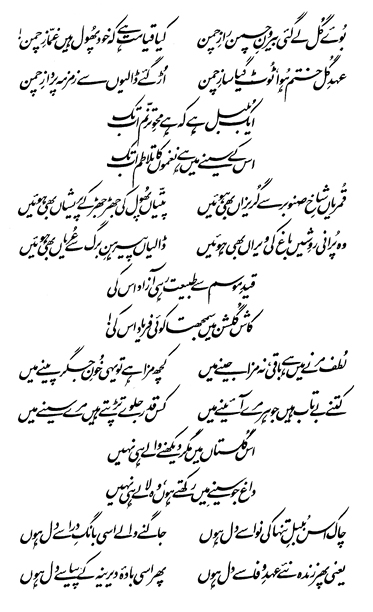 بوئے گل لے گئی بیرونِ چمن رازِ چمن کیا قیامت ہے کہ خود پھول ہیں غمّازِ چمن!
عہدِ گل ختم ہوا ٹوٹ گیا سازِ چمن اُڑ گئے ڈالیوں سے زمزمہ پردازِ چمن
ایک بلبل ہے کہ ہے محوِ ترنّم اب تک
اس کے سینے میں ہے نغموں کا تلاطم اب تک
قمریاں شاخِ صنوبر سے گریزاں بھی ہوئیں پتّیاں پھول کی جھڑ جھڑ کے پریشاں بھی ہوئیں
وہ پرانی روشیں باغ کی ویراں بھی ہوئیں ڈالیاں پیرہنِ برگ سے عریاں بھی ہوئیں
قیدِ موسم سے طبیعت رہی آزاد اس کی
کاش گلشن میں سمجھتا کوئی فریاد اس کی!
لطف مرنے میں ہے باقی، نہ مزا جینے میں کچھ مزا ہے تو یہی خونِ جگر پینے میں
کتنے بے تاب ہیں جوہر مرے آئینے میں کس قدر جلوے تڑپتے ہیں مرے سینے میں
اس گلستاں میں مگر دیکھنے والے ہی نہیں
داغ جو سینے میں رکھتے ہوں، وہ لالے ہی نہیں
چاک اس بلبلِ تنہا کی نوا سے دل ہوں جاگنے والے اسی بانگِ درا سے دل ہوں
یعنی پھر زندہ نئے عہدِ وفا سے دل ہوں پھر اسی بادۂ دیرینہ کے پیاسے دل ہوں